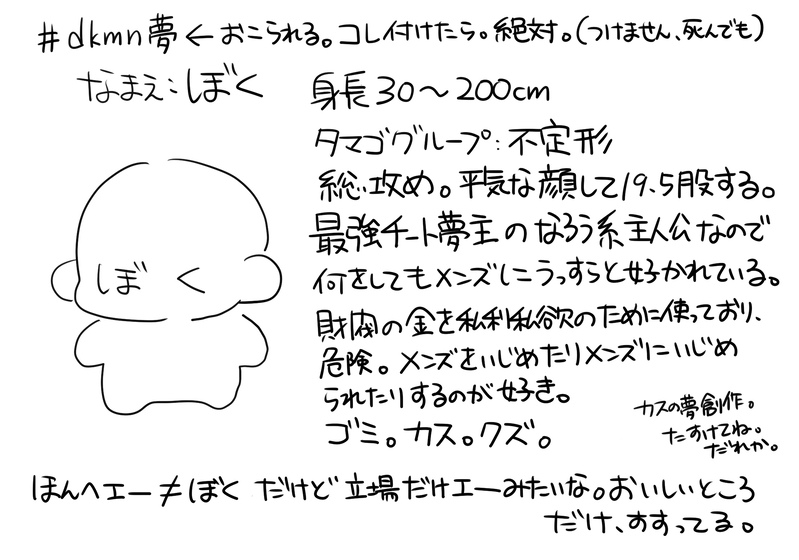 #dkmn夢←おこられる。コレ付けたら。絶対。(つけません、死んでも)
なまえ:ぼく
身長30〜200cm
タマゴグループ:不定形
総攻め。平気な顔して19.5股する。
最強チート夢主のなろう系主人公なので
何をしてもメンズにうっすらと好かれている。
財閥の金を私利私欲のために使っており、
危険。メンズをいじめたりメンズにいじめ
られたりするのが好き。
ゴミ。カス。クズ。
ぼく
カスの夢創作。
たすけてね。
だれか。
ほんへエー≠ぼく だけど立場だけエーみたいな。おいしいところ
だけ、すすってる。